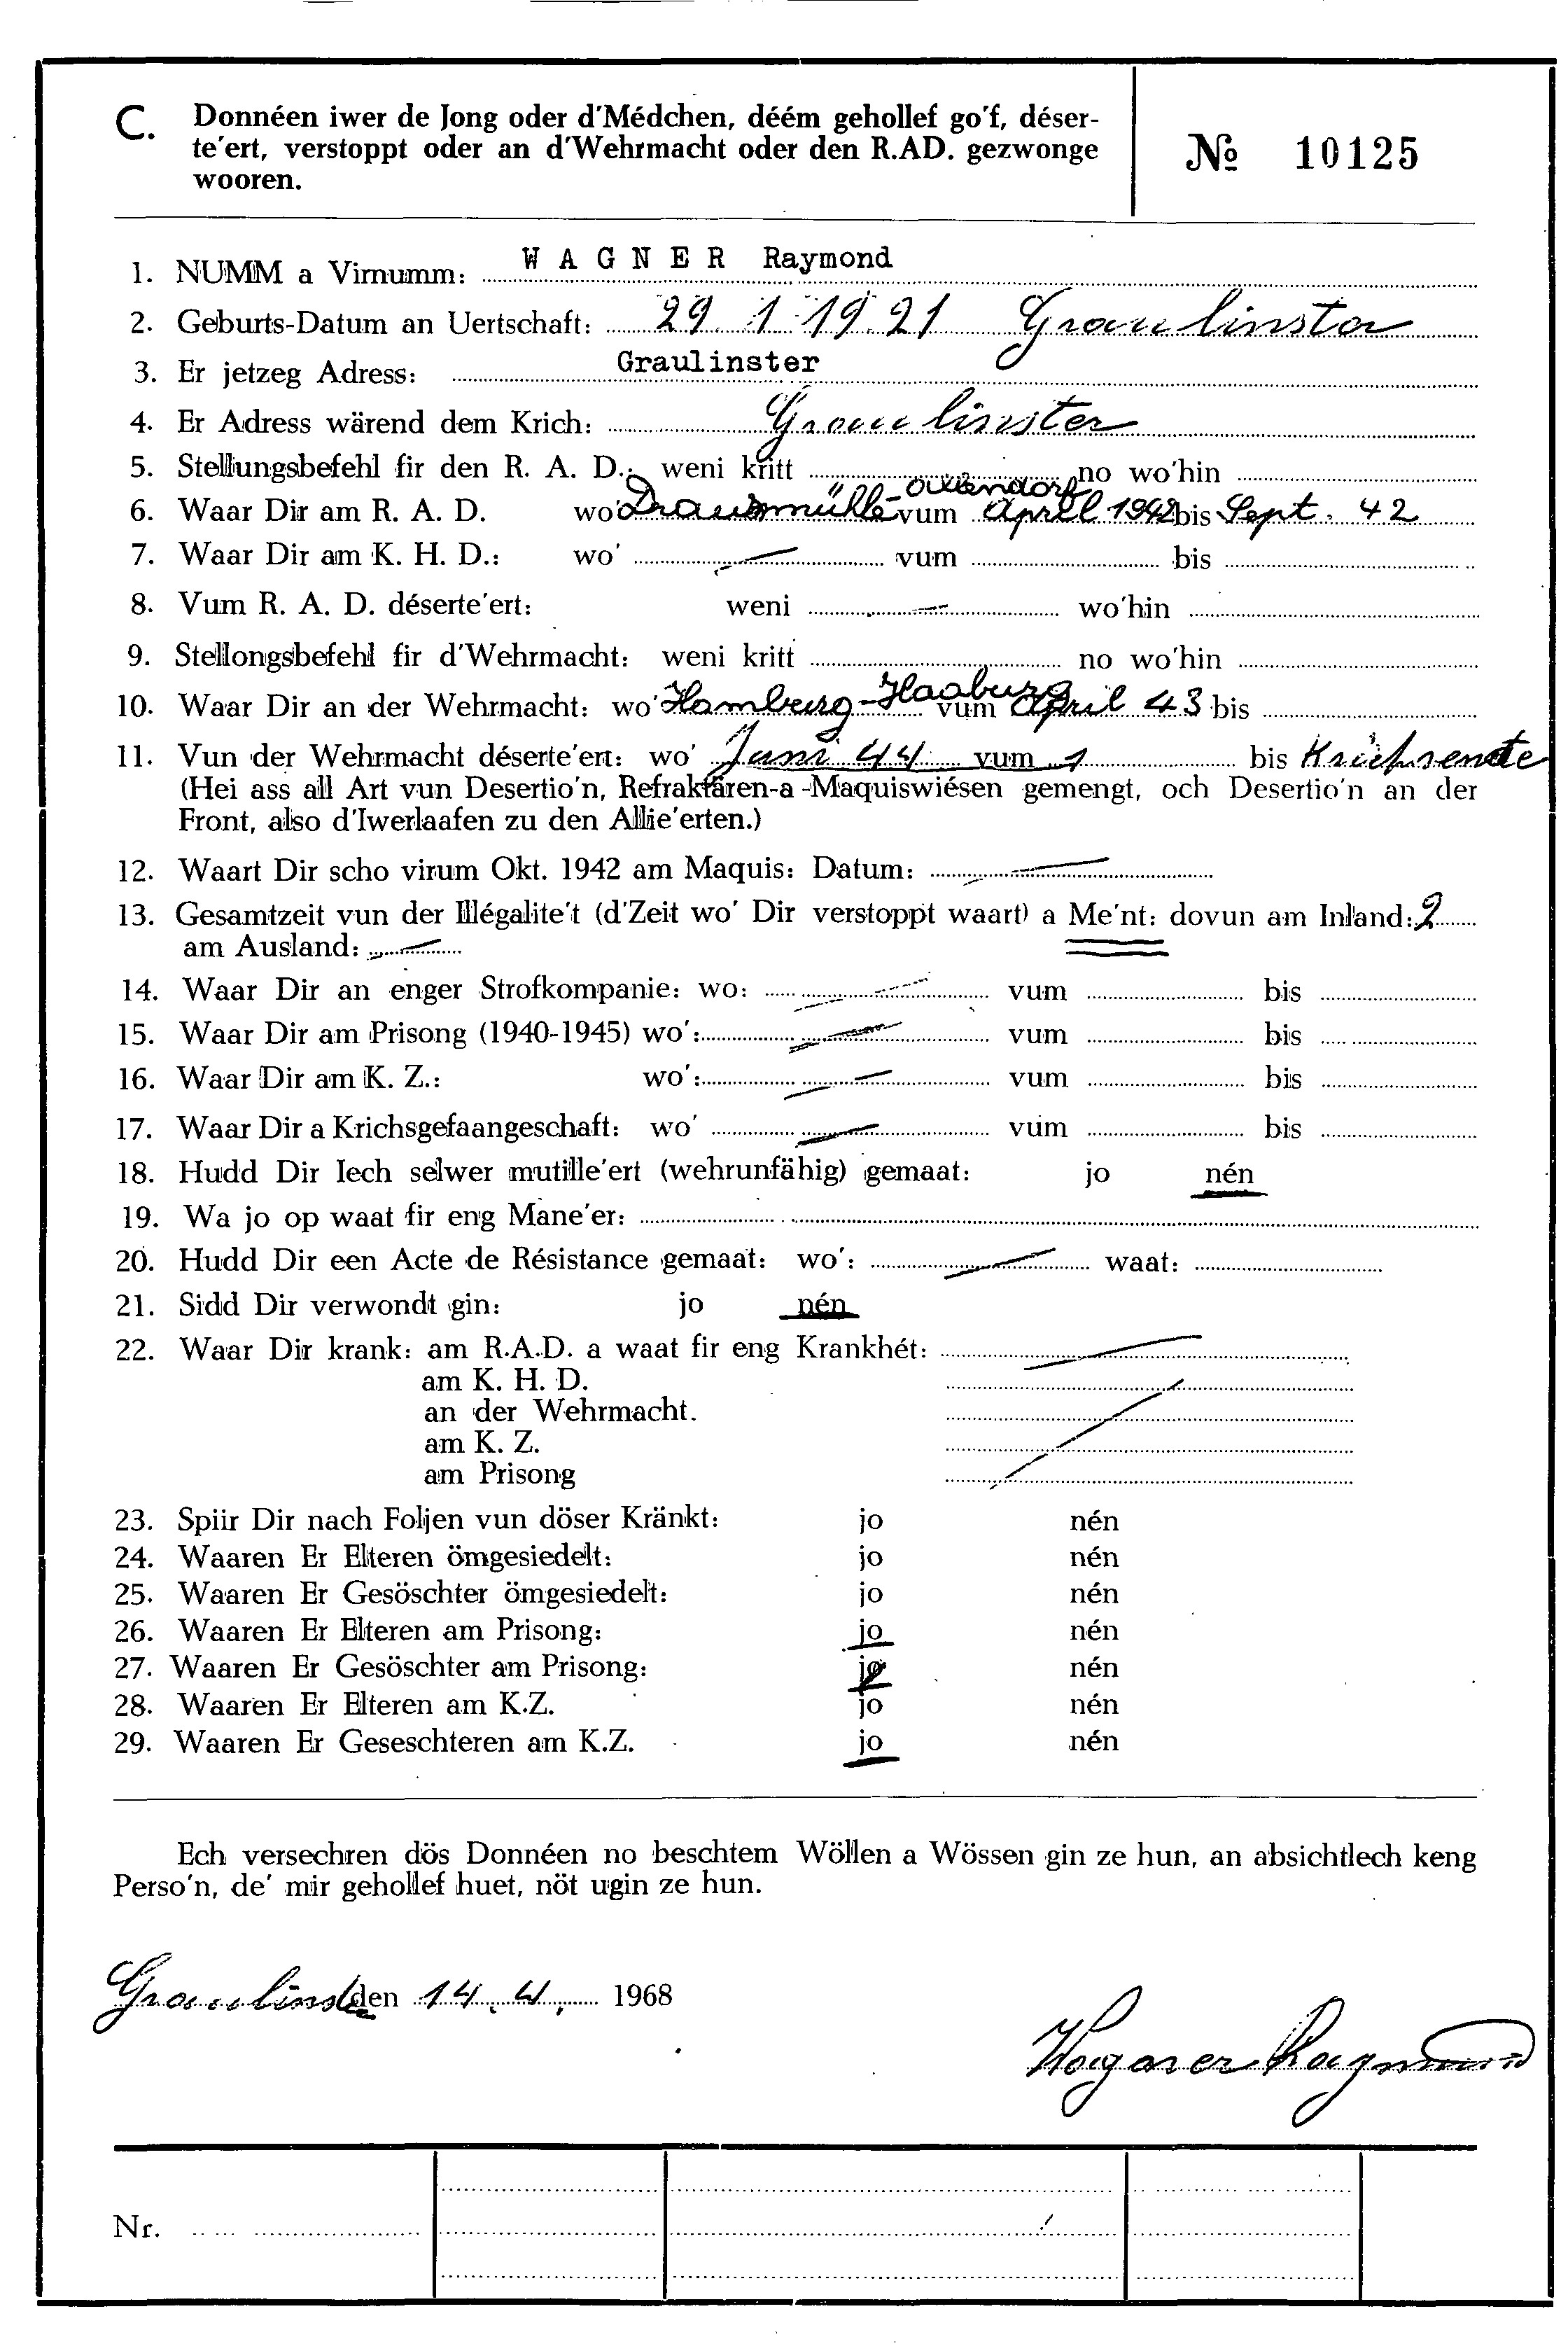 C. Donnéen iwer de Jong oder d'Médchen, déém gehollef go'f, déser-
te'ert, verstoppt oder an d'Wehrmacht oder den R.AD. gezwonge
wooren.
№ 10125
1. NUMM a Virnumm: WAGNER Raymond
2. Geburts-Datum an Uertschaft: 29. 1 19.21 Graulinster
3. Er jetzeg Adress: Graulinster
4. Er Adress wärend dem Krich: Graulinster
5. Stellungsbefehl fir den R. A. D.: weni kritt no wo'hin
6. Waar Dir am R. A. D. wo' vum April 1942 bis Sept. 42
7. Waar Dir am K. H. D.: wo' vum bis
8. Vum R. A. D. déserte'ert: weni wo'hin
9. Stellongsbefehl fir d'Wehrmacht: weni kritt no wo'hin
10. Waar Dir an der Wehrmacht: wo' Hamburg-Haaburg vum April 43 bis
11. Vun der Wehrmacht déserte'ert: wo' Juni 44 vum 1 bis
(Hei ass all Art vun Desertio'n, Refraktären-a -Maquiswiésen gemengt, och Desertio'n an der
Front, also d'Iwerlaafen zu den Allie'erten.)
12. Waart Dir scho virum Okt. 1942 am Maquis: Datum:
13. Gesamtzeit vun der Illégalite't (d'Zeit wo' Dir verstoppt waart) a Me'nt: dovun am Inland: 2
am Ausland:
14. Waar Dir an enger Strofkompanie: wo: vum bis
15. Waar Dir am Prisong (1940-1945) wo': vum bis
16. Waar Dir am K. Z.: wo': vum bis
17. Waar Dir a Krichsgefaangeschaft: wo' vum bis
18. Hudd Dir Iech selwer mutille'ert (wehrunfähig) gemaat: jo nén
19. Wa jo op waat fir eng Mane'er:
20. Hudd Dir een Acte de Résistance gemaat: wo': waat:
21. Sidd Dir verwondt gin: jo nén
22. Waar Dir krank: am R.A.D. a waat fir eng Krankhét:
am K. H. D.
an der Wehrmacht.
am K. Z.
am Prisong
23. Spiir Dir nach Foljen vun döser Kränkt: jo nén
24. Waaren Er Elteren ömgesiedelt: jo nén
25. Waaren Er Gesöschter ömgesiedelt: jo nén
26. Waaren Er Elteren am Prisong: jo nén
27. Waaren Er Gesöschter am Prisong: jo nén
28. Waaren Er Elteren am K.Z. jo nén
29. Waaren Er Geseschteren am K.Z. jo nén
Ech versechren dös Donnéen no beschtem Wöllen a Wössen gin ze hun, an absichtlech keng
Perso'n, de' mir gehollef huet, nöt ugin ze hun.
Graulinster den 14. 4. 1968
Wagner Raymond
Nr.